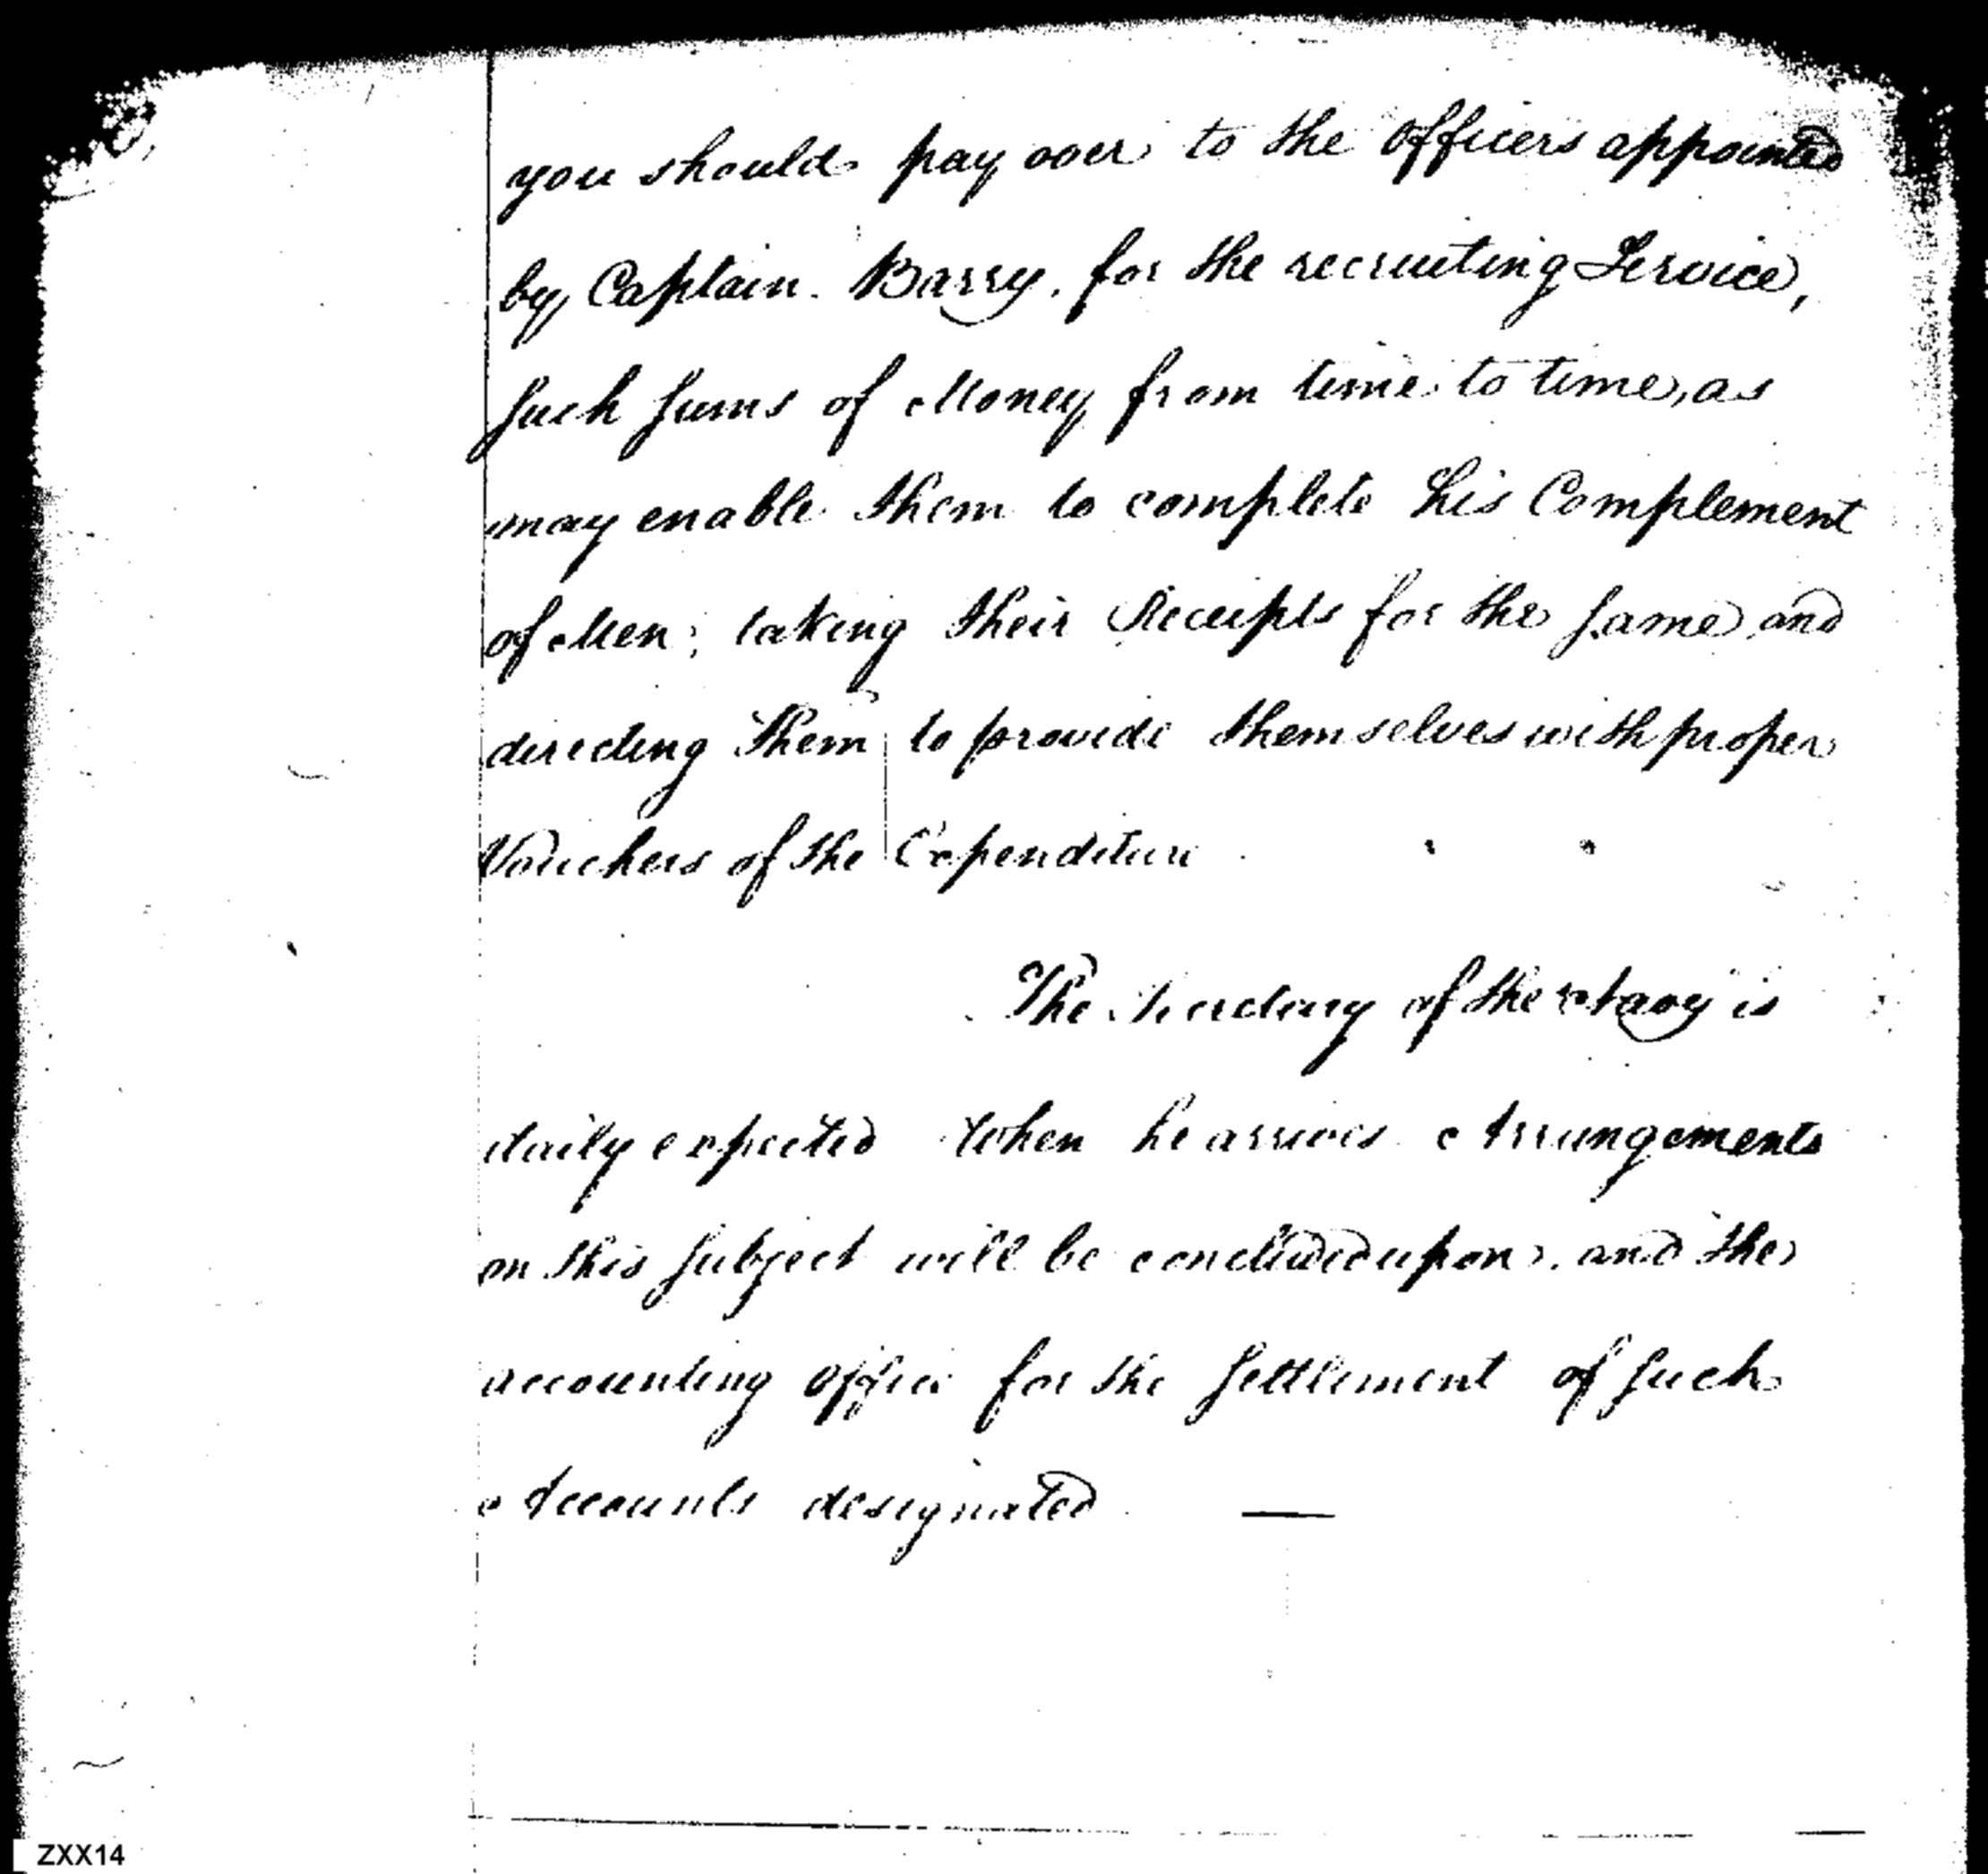 you should pay over to the Officers appointed
by Captain Barry, for the recruiting Service,
such sums of Money from time to time, as
may enable them to complete his Complement
of Men; taking their Receipts for the same and
directing them to provide themselves with proper
Vouchers of the Expenditure
The Secretary of the Navy is
daily expected when he arrives Arrangements
on this subject will be concluded upon, and the
accounting Officer for the settlement of such
Accounts designated —
ZXX14